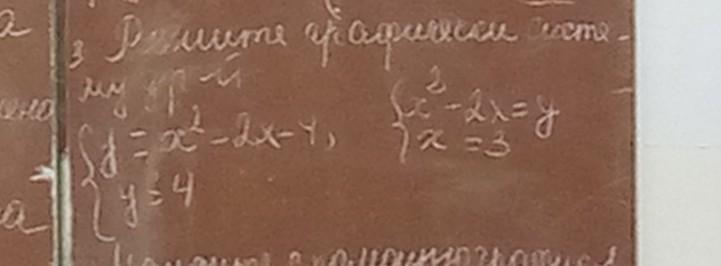 а
3 Решите графически систе-
му ур-й
{y = x² - 2x - 4,
{y = 4
{x² - 2x = y
{x = 3
а